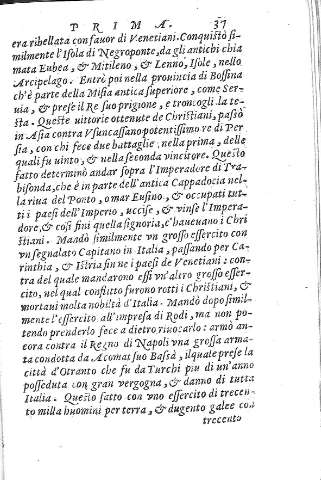 PRIMA. 37
era ribellata con fauor di Venetiani. Conquistò si-
milmente l'Isola di Negroponte, da gli antichi chia
mata Eubea, & Mitileno, & Lenno, Isole, nello
Arcipelago. Entrò poi nella prouincia di Bossina
ch'è parte della Misia antica superiore, come Ser-
uia, & prese il Re suo prigione, e troncogli la te-
sta. Queste uittorie ottenute de Christiani, passò
in Asia contra Vsuncassano potentissimo re di Per
sia, con chi fece due battaglie, nella prima, delle
quali fu uinto, & nella seconda vincitore. Questo
fatto determinò andar sopra l'Imperadore di Tra-
bisonda, che è in parte dell'antica Cappadocia nel-
la riua del Ponto, o mar Eusino, & occupati tut-
ti i paesi dell'Imperio, uccise, & vinse l'Impera-
dore, & così finì quella signoria, c'haueuano i Chri
stiani. Mandò similmente vn grosso essercito con
vn segnalato Capitano in Italia, passando per Ca-
rinthia, & Istria sin ne i paesi de Venetiani: con-
tra del quale mandarono essi vn'altro grosso esser-
cito, nel qual conflitto furono rotti i Christiani, &
mortaui molta nobiltà d'Italia. Mandò dopo simil-
mente l'essercito all'impresa di Rodi, ma non po-
tendo prenderlo fece a dietro riuocarlo: armò an-
cora contra il Regno di Napoli vna grossa arma-
ta condotta da Acomat suo Bassà, il quale prese la
città d'Otranto che fu da Turchi piu di un'anno
posseduta con gran vergogna, & danno di tutta
Italia. Questo fatto con vno essercito di trecen-
to milla huomini per terra, & dugento galee con
trecento